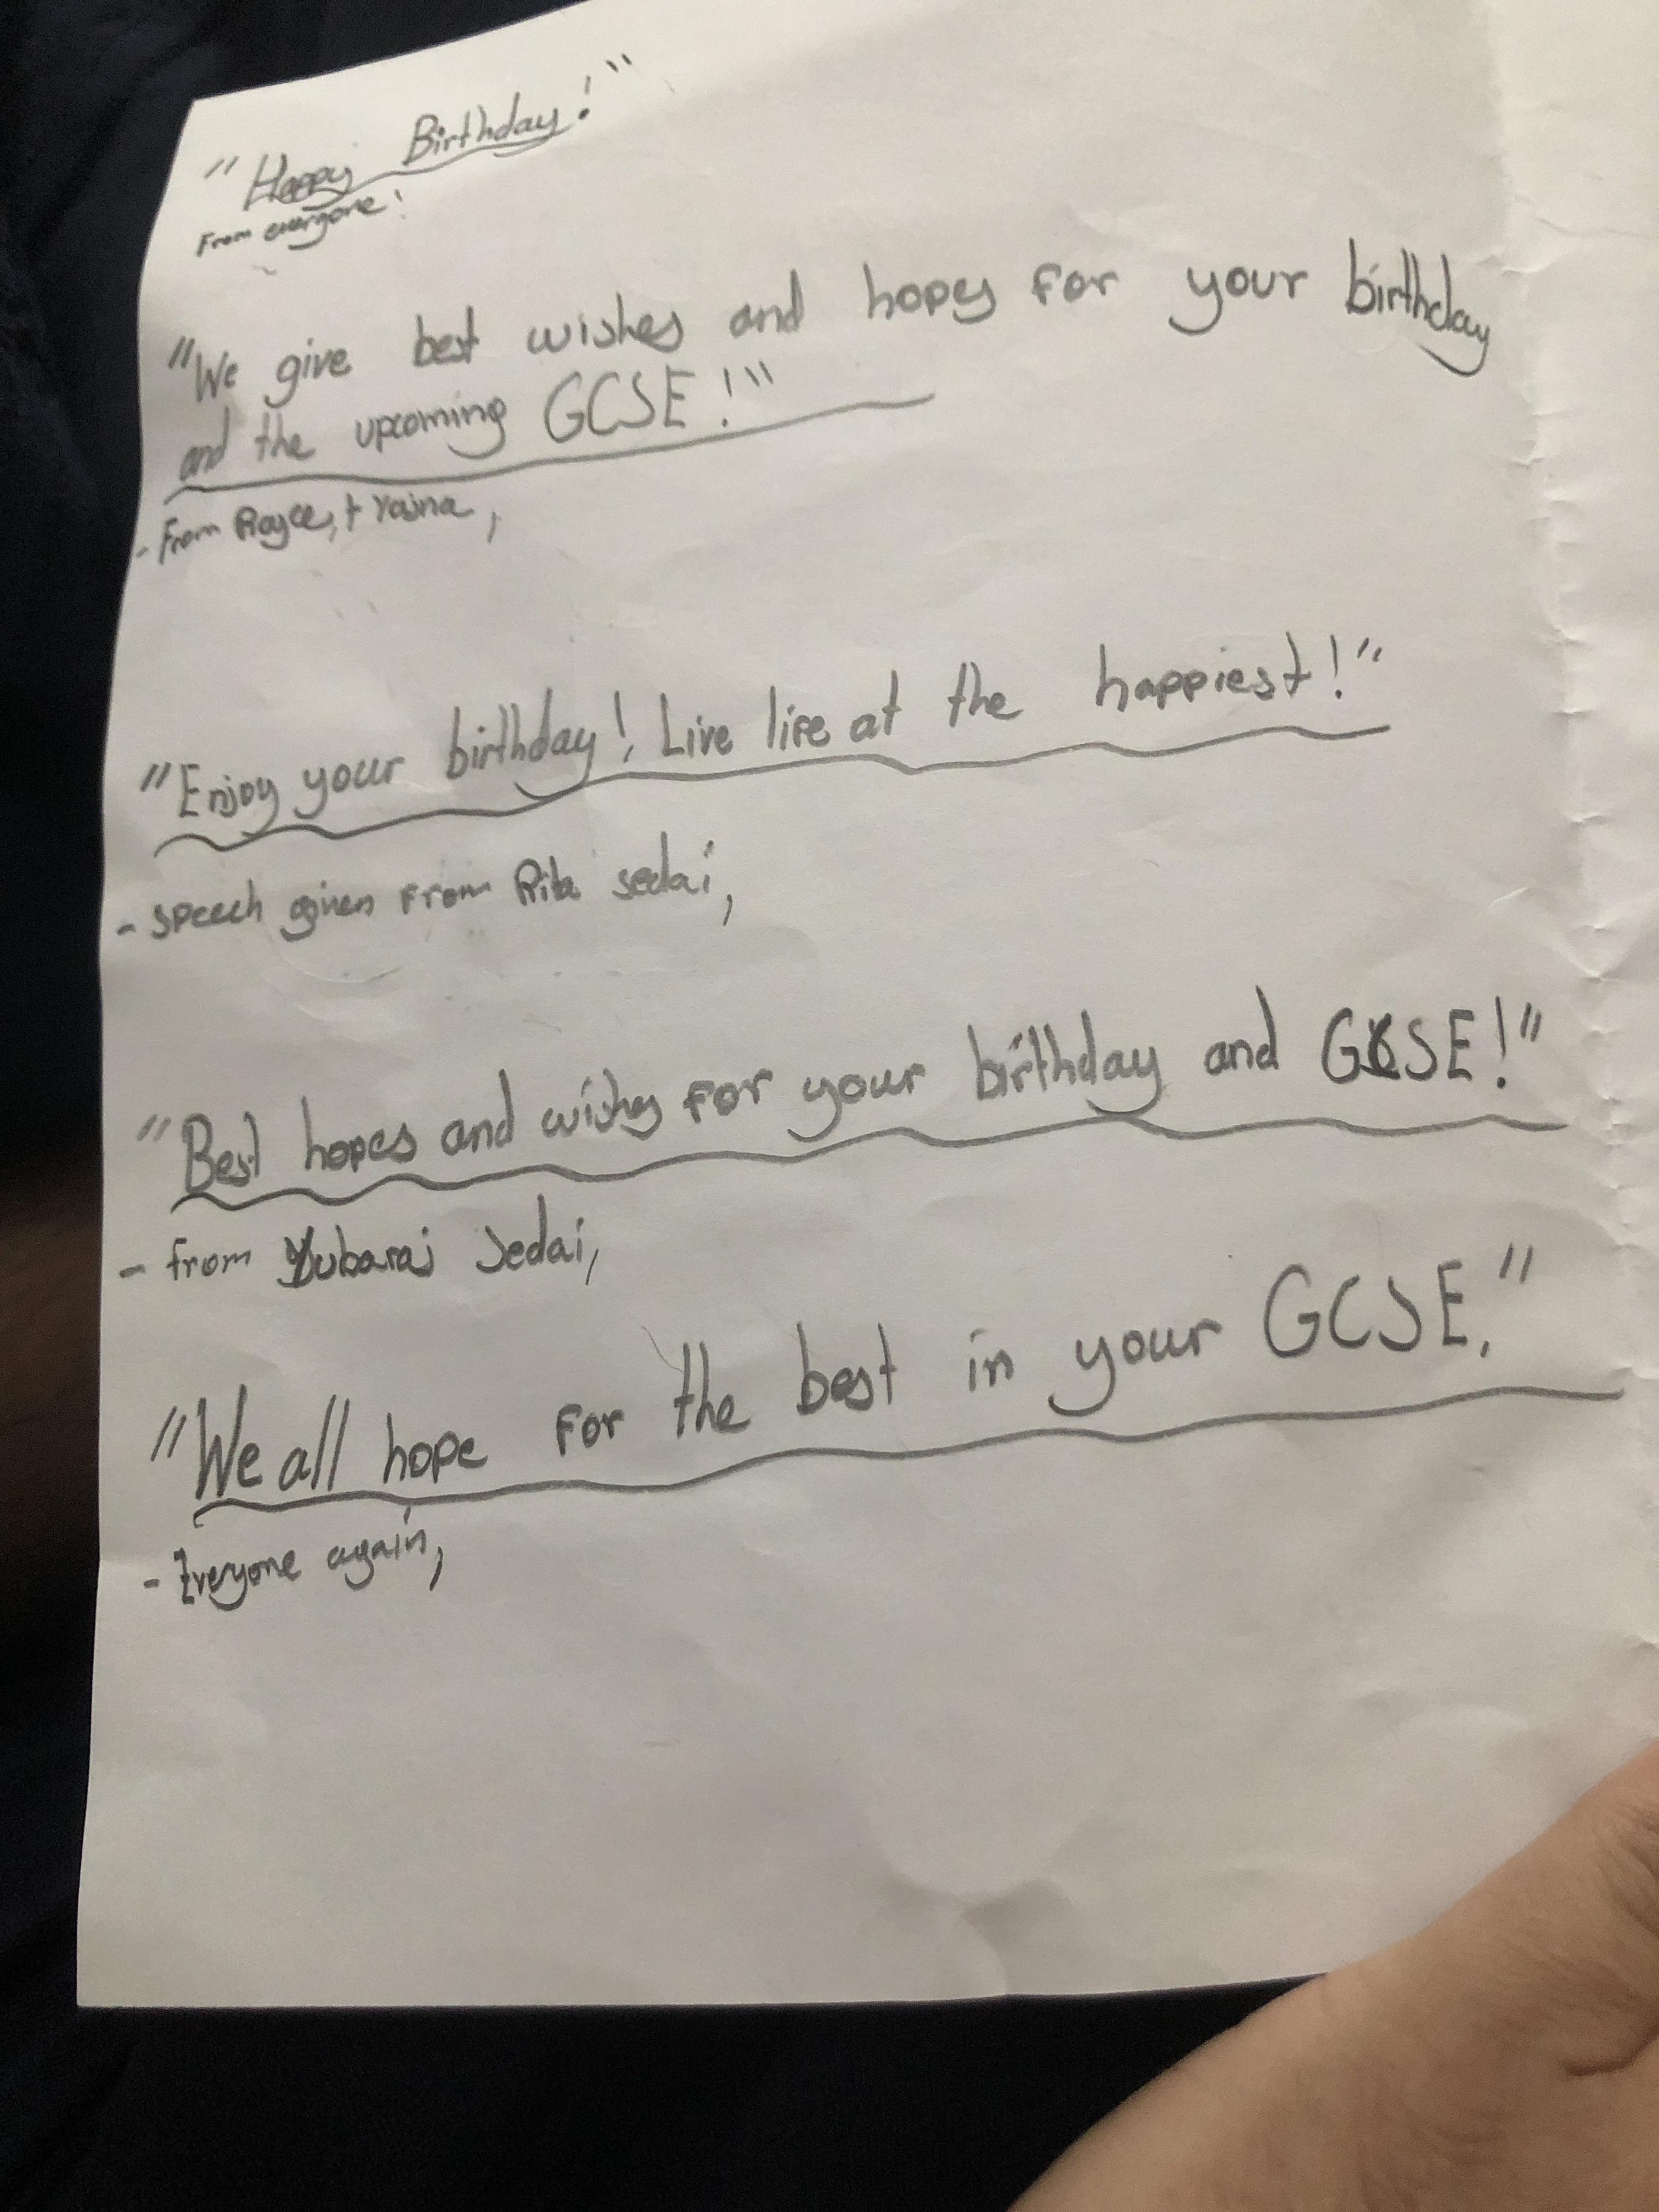 "Happy Birthday!"
From everyone!
"We give best wishes and hopes for your birthday
and the upcoming GCSE!"
- From Royce, + Yajna,
"Enjoy your birthday! Live life at the happiest!"
- speech given from Rita sedai,
"Best hopes and wishes for your birthday and GCSE!"
- from Yubaraj Sedai,
"We all hope for the best in your GCSE."
- Everyone again,